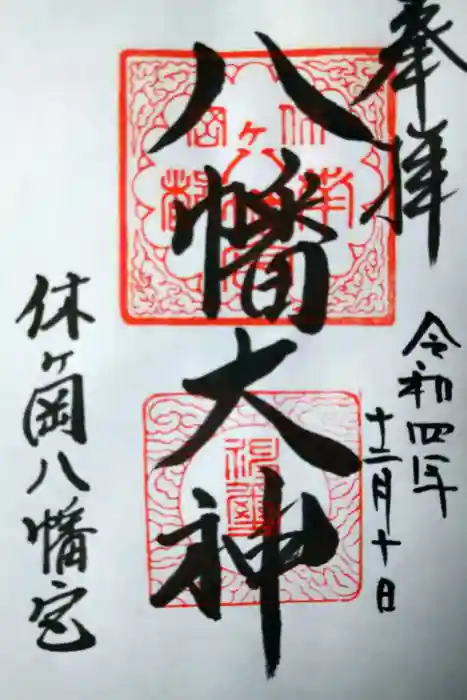 奉拝
令和四年
十二月十日
八幡大神
休ヶ岡八幡宮